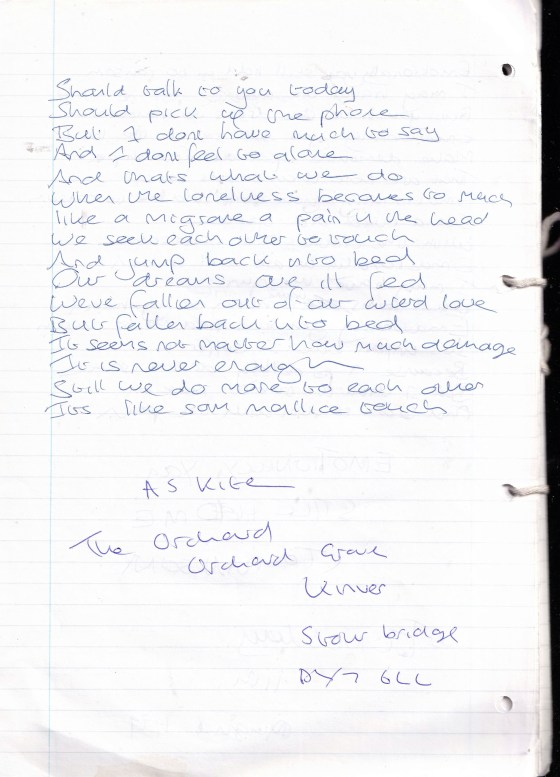 Should talk to you today
Should pick up the phone
But I dont have much to say
And I dont feel to alone
And thats what we do
When the loneliness becomes to much
like a migrane a pain in the head
We seek each other to touch
And jump back into bed
Our dreams are ill fed
Weve fallen out of our love
But fallen back into bed
It seems not matter how much damage
It is never enough
Still we do more to each other
Its like som mallice touch
A S Kite
The Orchard
Orchard Grove
Kinver
Stour bridge
DY7 6LL